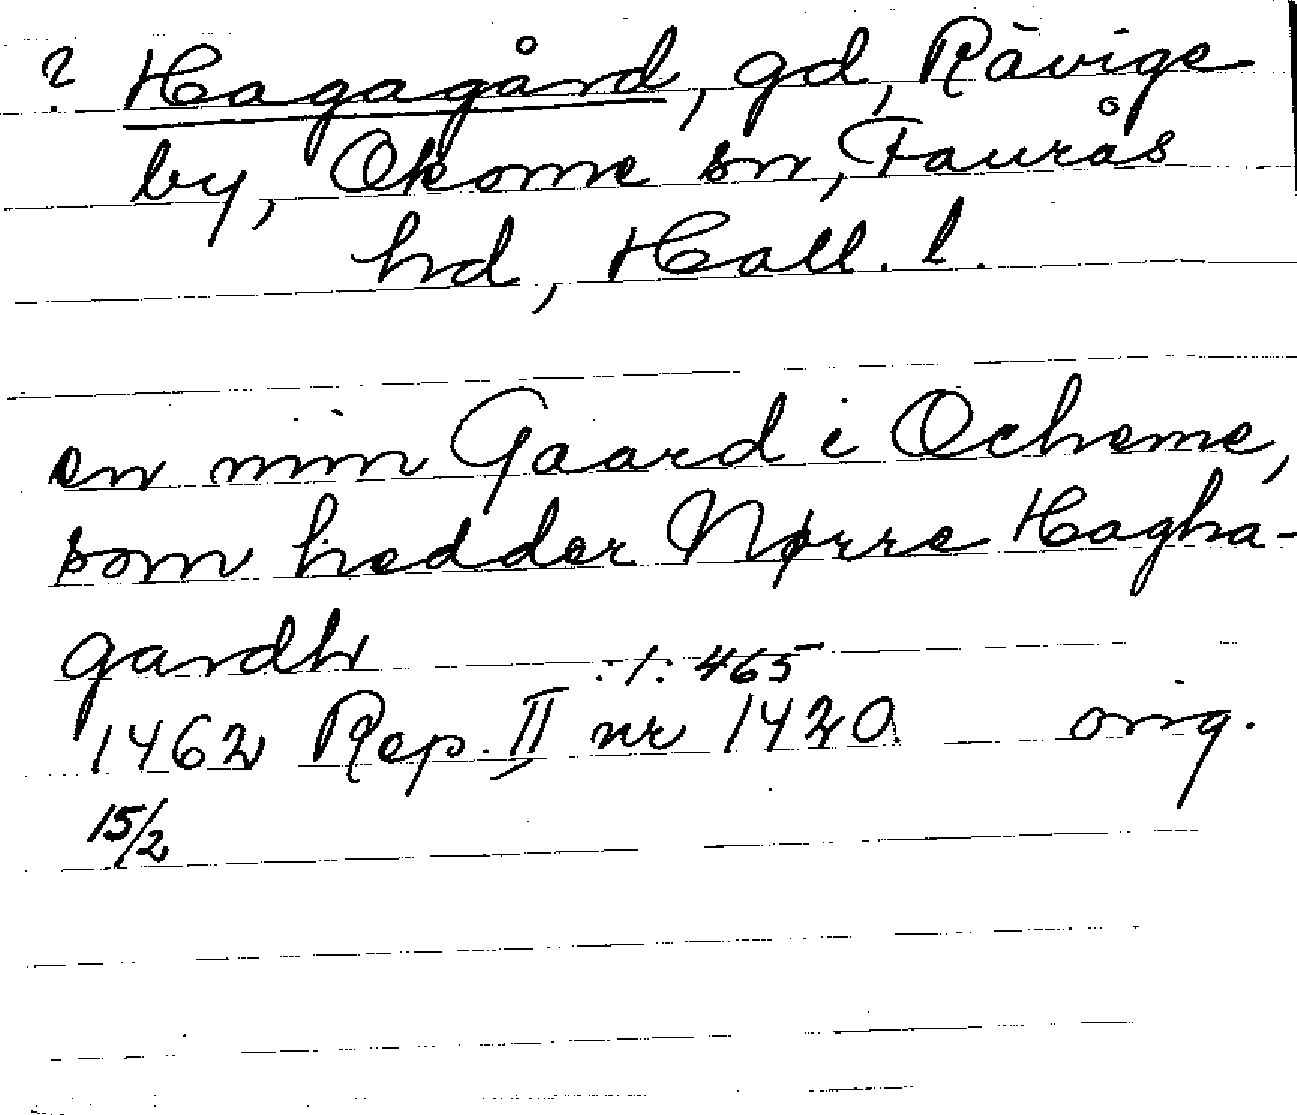 ? Hagagård, gd, Rävige
by, Okome sn, Faurås
hd, Hall. l.
en min Gaard i Ocheme,
som hedder Nørre Hagha-
gardh
:/: 465
1462 Rep. II nr 1420 orig.
15/2